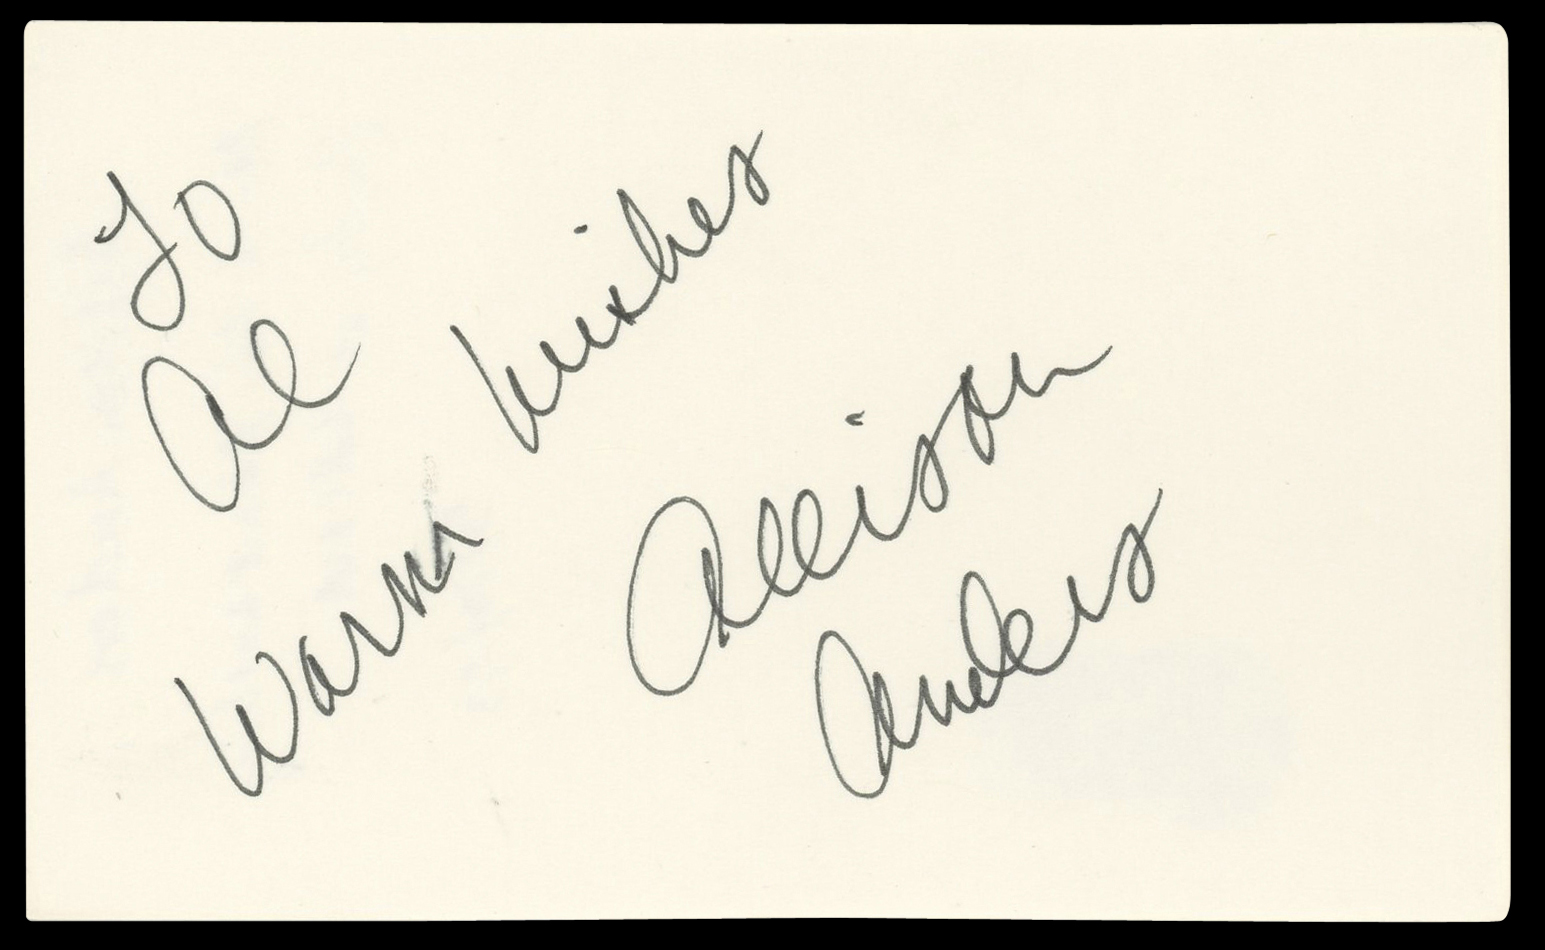 To
Al
Warm wishes
Allison
Anders